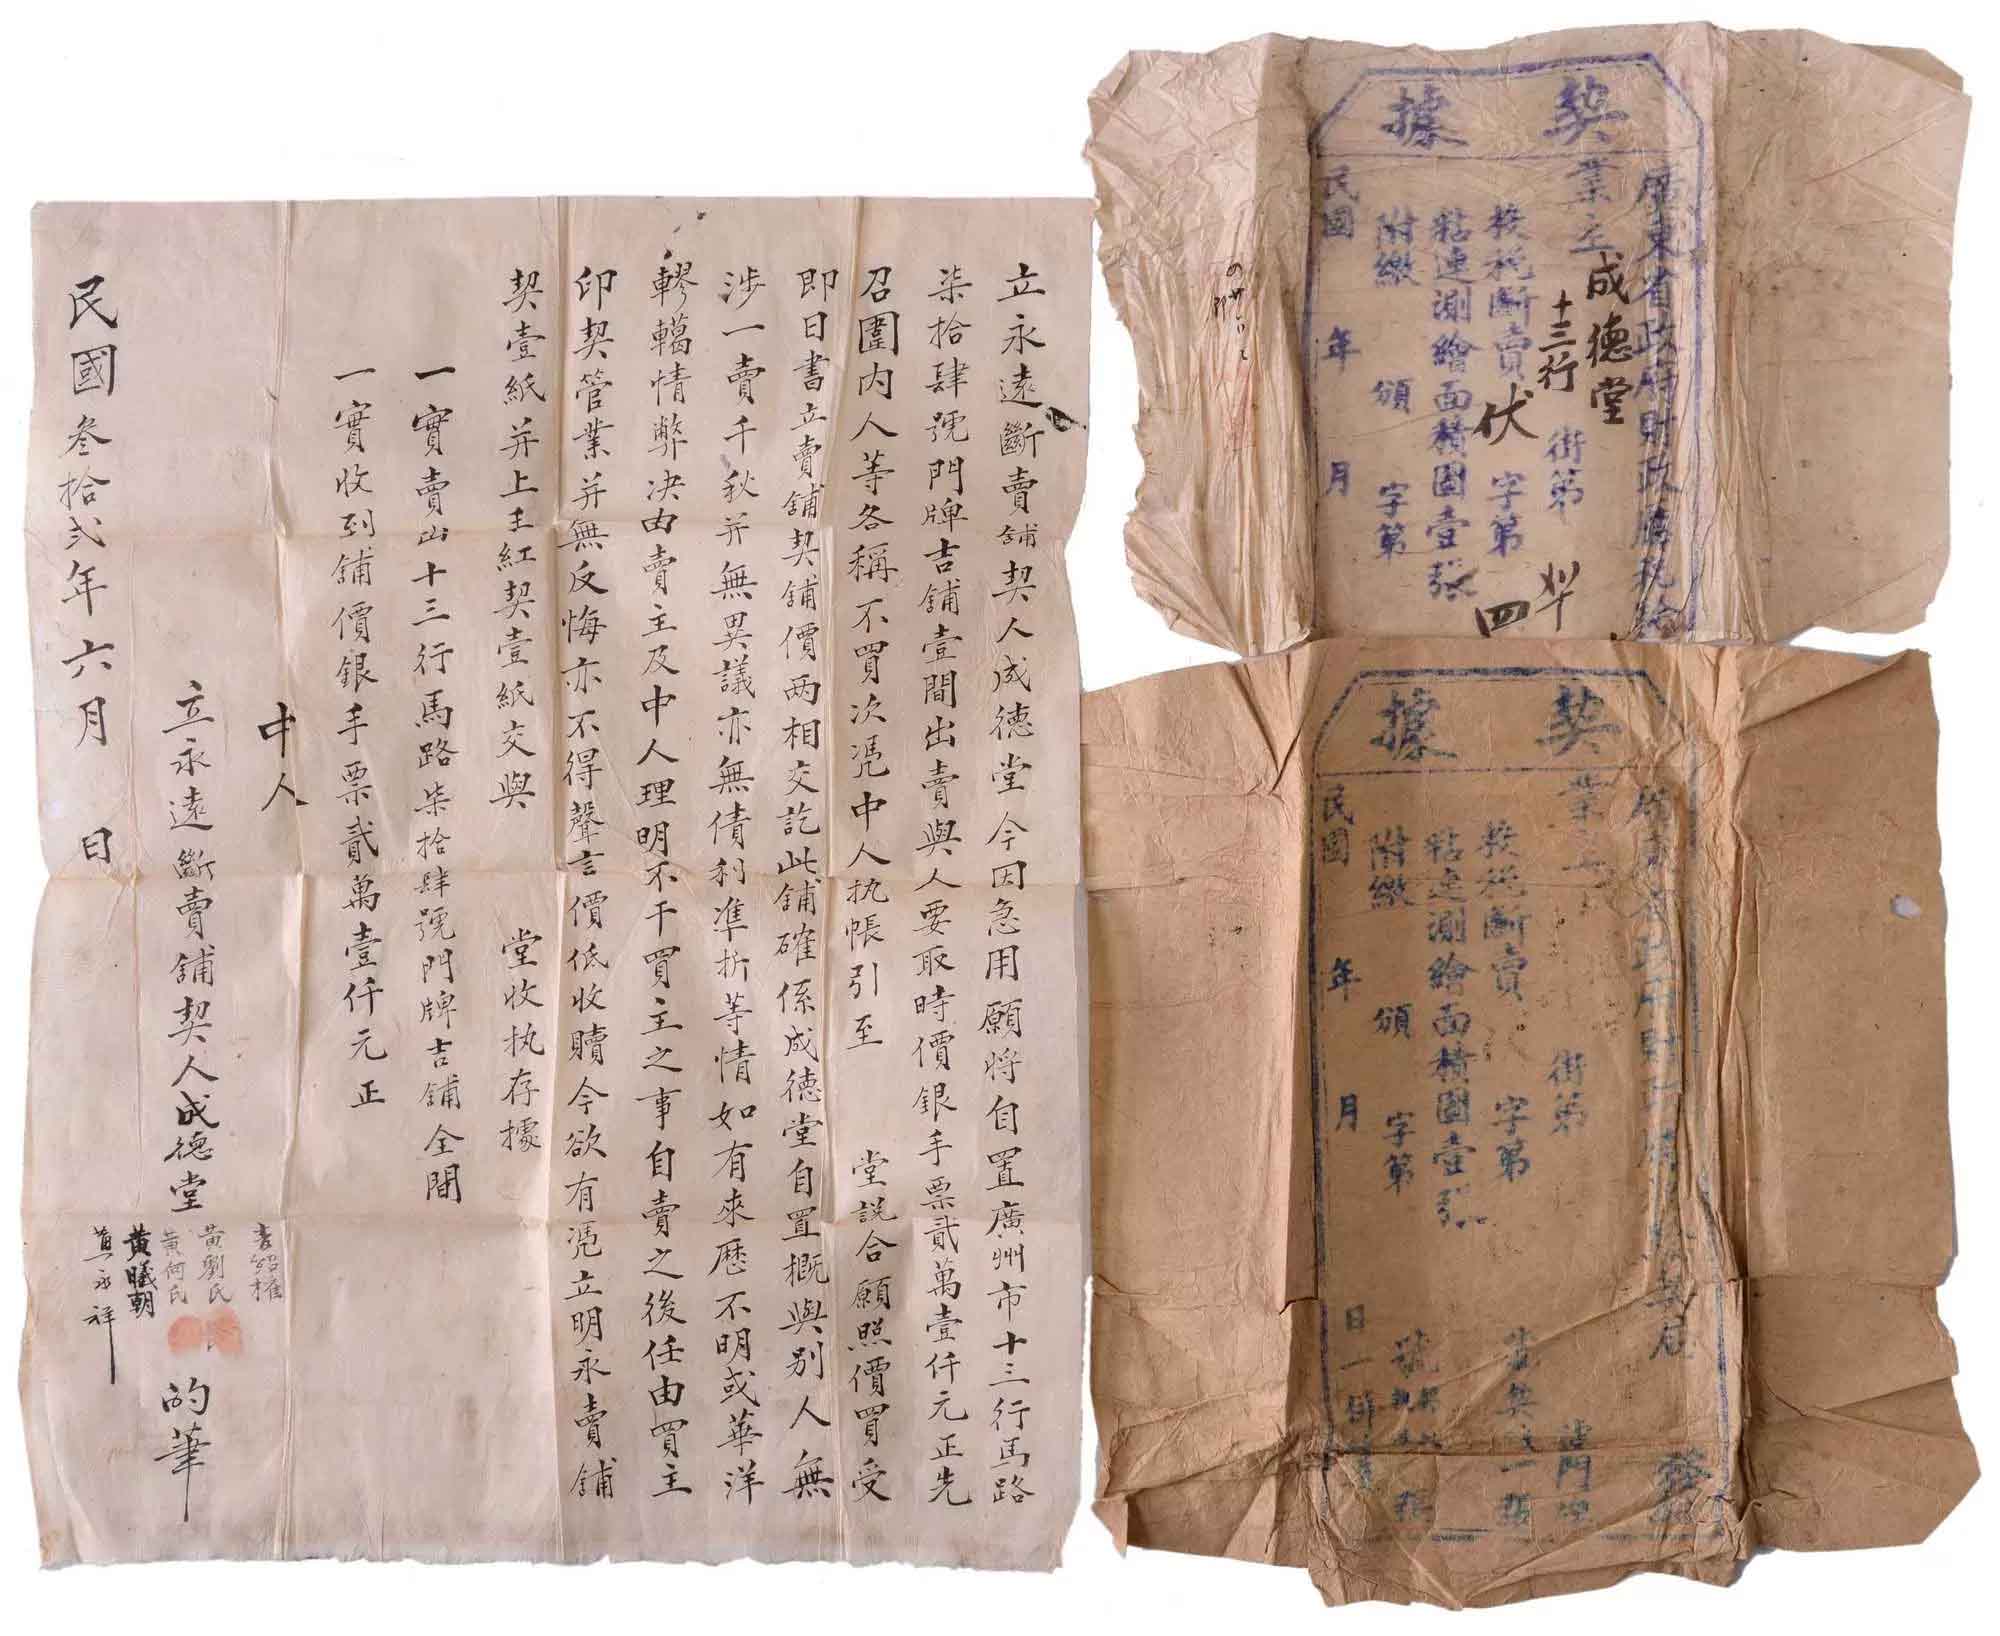 立永遠斷賣舖契人成德堂今因急用願將自置廣州市十三行馬路
柒拾肆號門牌吉舖壹間出賣與人要取時價銀手票貳萬壹仟元正先
召圍內人等各稱不買次凴中人执帳引至 堂說合願照價買受
即日書立賣舖契舖價两相交訖此舖確係成德堂自置概與別人無
涉一賣千秋并無異議亦無債利準折等情如有來歷不明或華洋
轇轕情弊决由賣主及中人理明不干買主之事自賣之後任由買主
印契管業并無反悔亦不得聲言價低收贖今欲有凴立明永賣舖
契壹紙并上手紅契壹紙交與 堂收执存據
一實賣出十三行馬路柒拾肆號門牌吉舖全間
一實收到舖價銀手票貳萬壹仟元正
中人
立永遠斷賣舖契人成德堂
黃劉氏
黃何氏
黃曦朝
黃永祥
的筆
民國叁拾弍年六月 日
契據
廣東省政府財政廳稅給
業主成德堂
十三行街第
投稅斷賣伏字第四
粘連測繪面積圖壹張
附繳 頒 字第
民國 年 月
契據
業主
街第
投稅斷賣 字第
粘連測繪面積圖壹張
附繳 頒 字第 號
民國 年 月 日